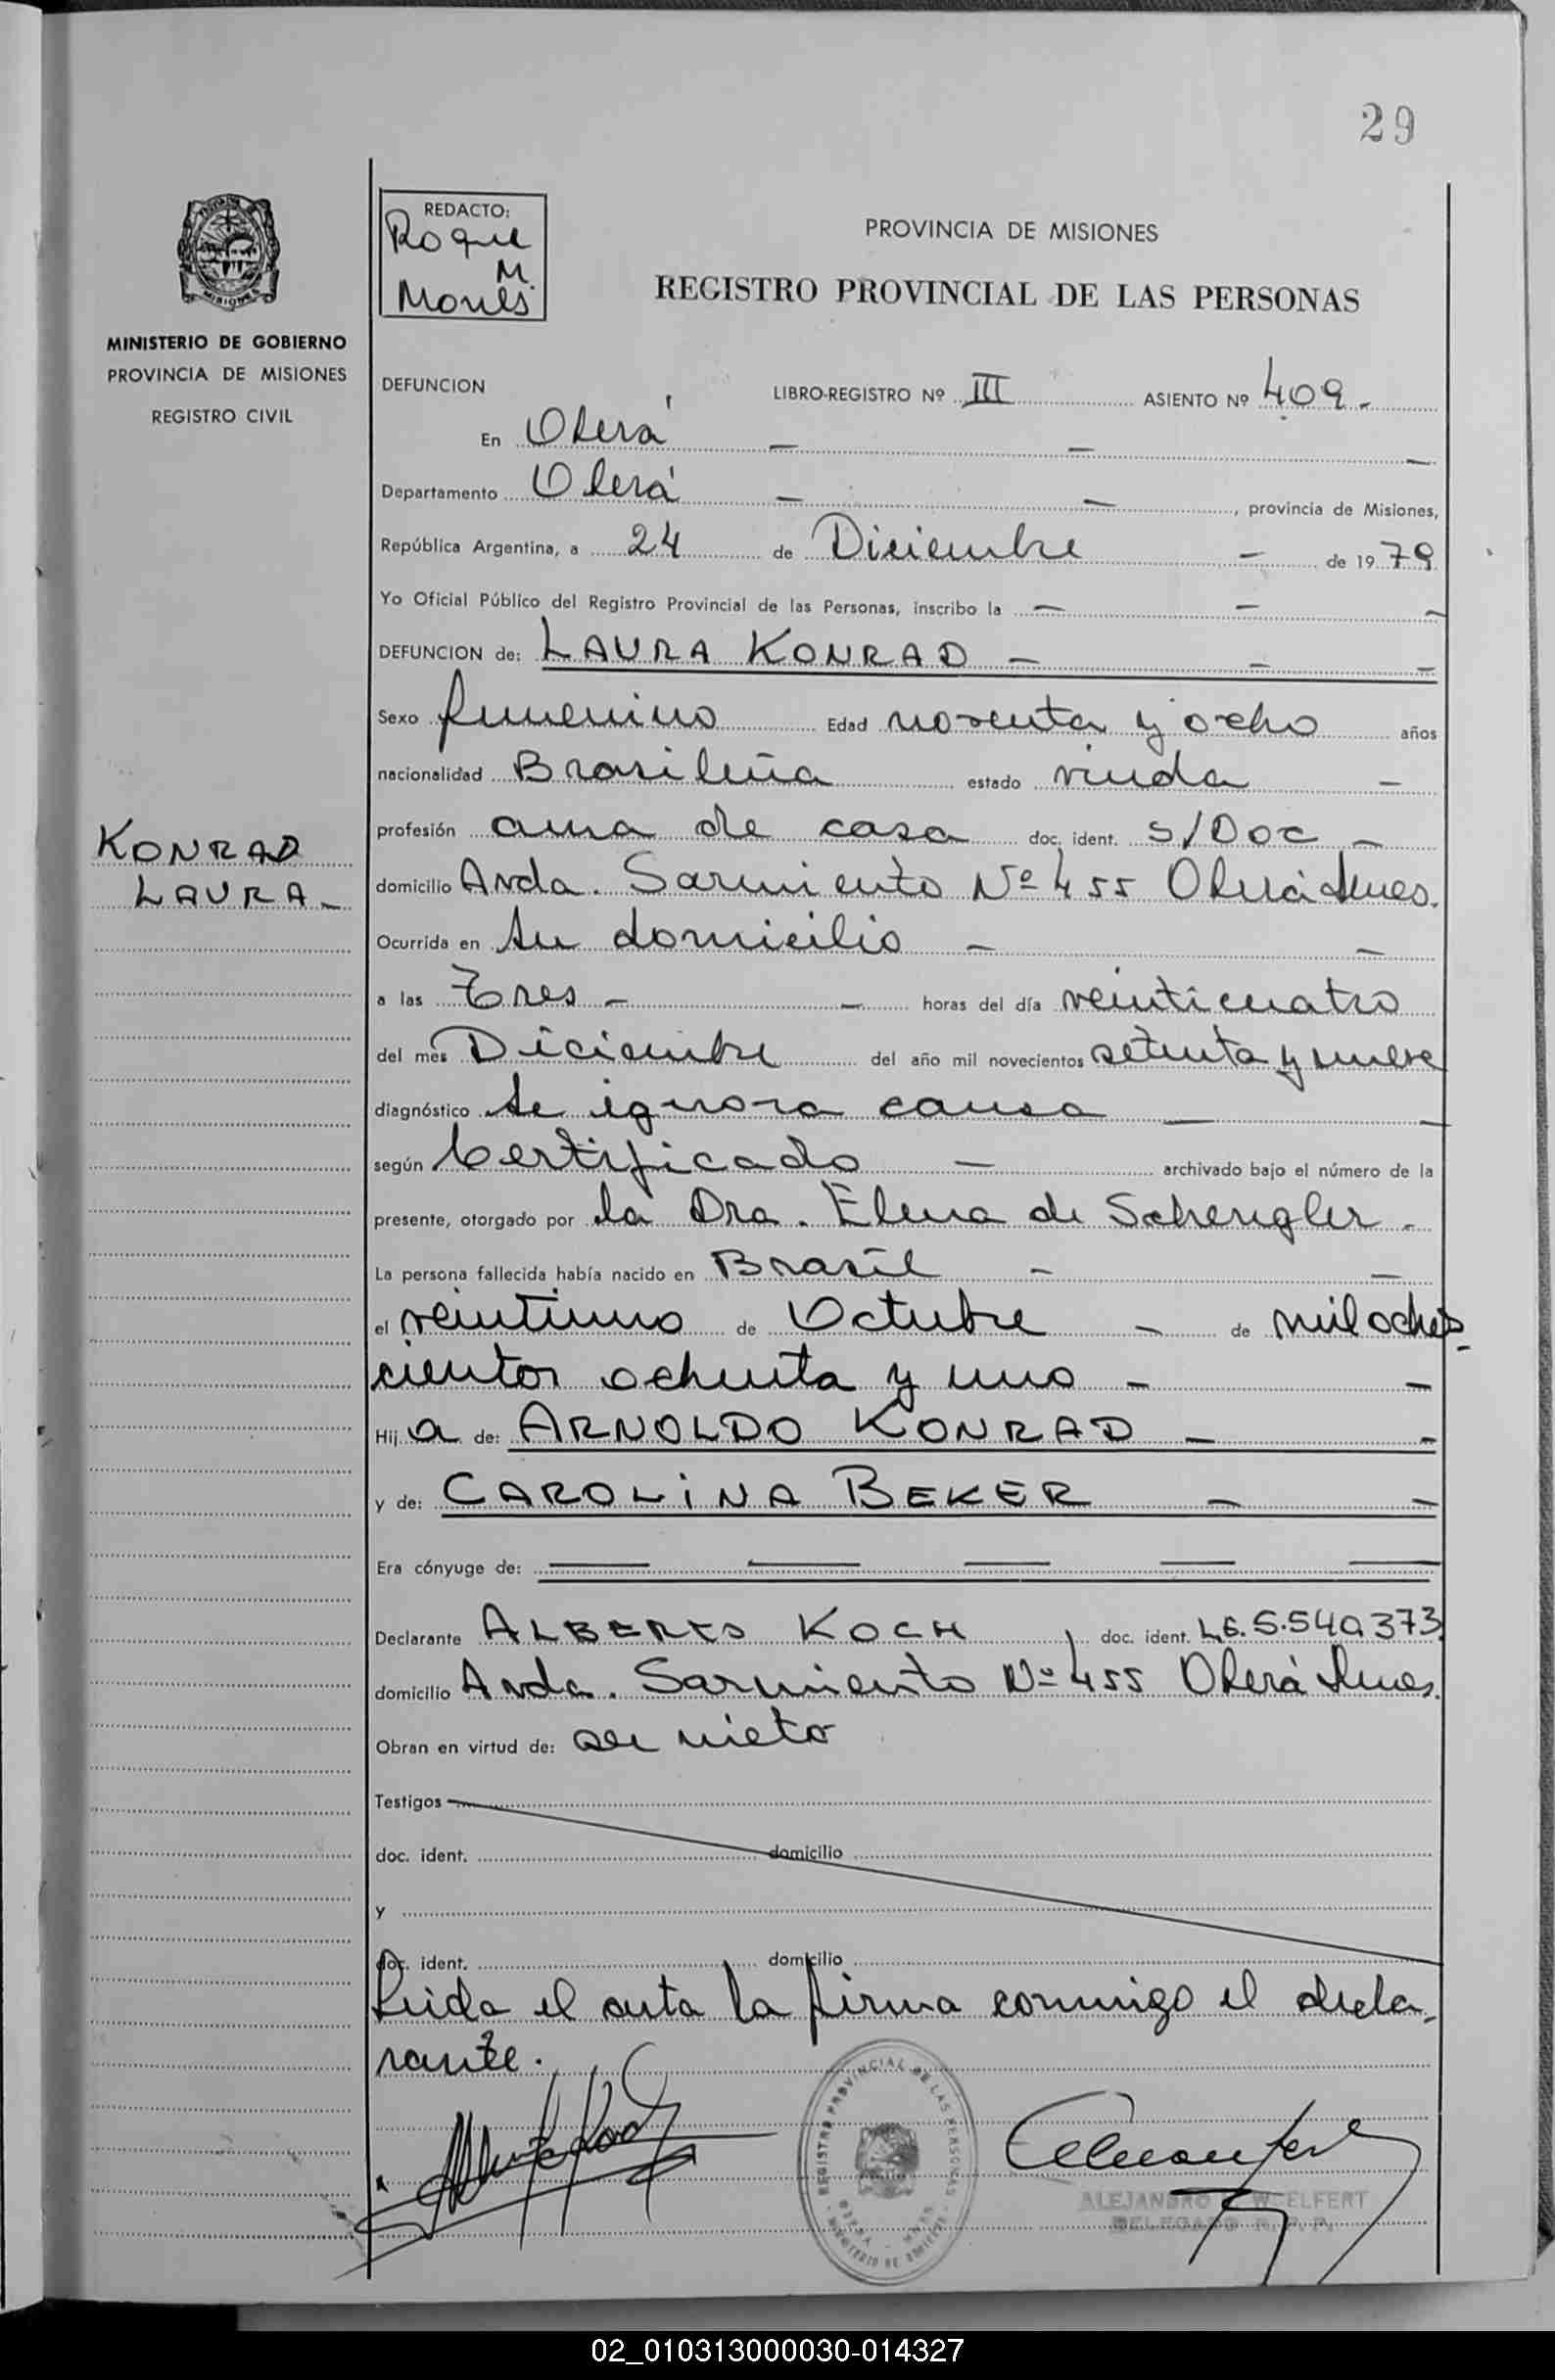 29
REDACTO:
Roque
M.
PROVINCIA DE MISIONES
REGISTRO PROVINCIAL DE LAS PERSONAS
MINISTERIO DE GOBIERNO
PROVINCIA DE MISIONES
REGISTRO CIVIL
DEFUNCION LIBRO-REGISTRO Nº III ASIENTO Nº 409.-
En Oberá - - -
Departamento Oberá - -, provincia de Misiones,
República Argentina, a 24 de Diciembre - de 1979
Yo Oficial Público del Registro Provincial de las Personas, inscribo la - - -
DEFUNCION de: LAURA KONRAD - - -
Sexo femenino Edad noventa y ocho años
nacionalidad Brasileña estado viuda -
KONRAD
LAURA -
profesión ama de casa doc. ident. S/Doc -
domicilio Avda. Sarmiento Nº 455 Oberá Mnes.
Ocurrida en su domicilio - -
a las Tres - - horas del día veinticuatro
del mes Diciembre del año mil novecientos setenta y nueve
diagnóstico se ignora causa - -
según Certificado - archivado bajo el número de la
presente, otorgado por la Dra. Elena de Schengler -
La persona fallecida había nacido en Brasil - -
el veintiuno de Octubre - de mil ocho
cientos ochenta y uno - -
Hija de: ARNOLDO KONRAD - -
y de: CAROLINA BEKER - -
Era cónyuge de: - - - - -
Declarante ALBERTO KOCH, doc. ident. L.E. 5.540.373
domicilio Avda. Sarmiento Nº 455 Oberá Mnes.
Obran en virtud de: ser nieto
Testigos
doc. ident. domicilio
y
doc. ident. domicilio
Leida el acta la firma conmigo el decla-
rante.
REGISTRO PROVINCIAL DE LAS PERSONAS
OBERA - MNES
MINISTERIO DE GOBIERNO
ALEJANDRO WOELFERT
DELEGADO R.P.P.
02_010313000030-014327